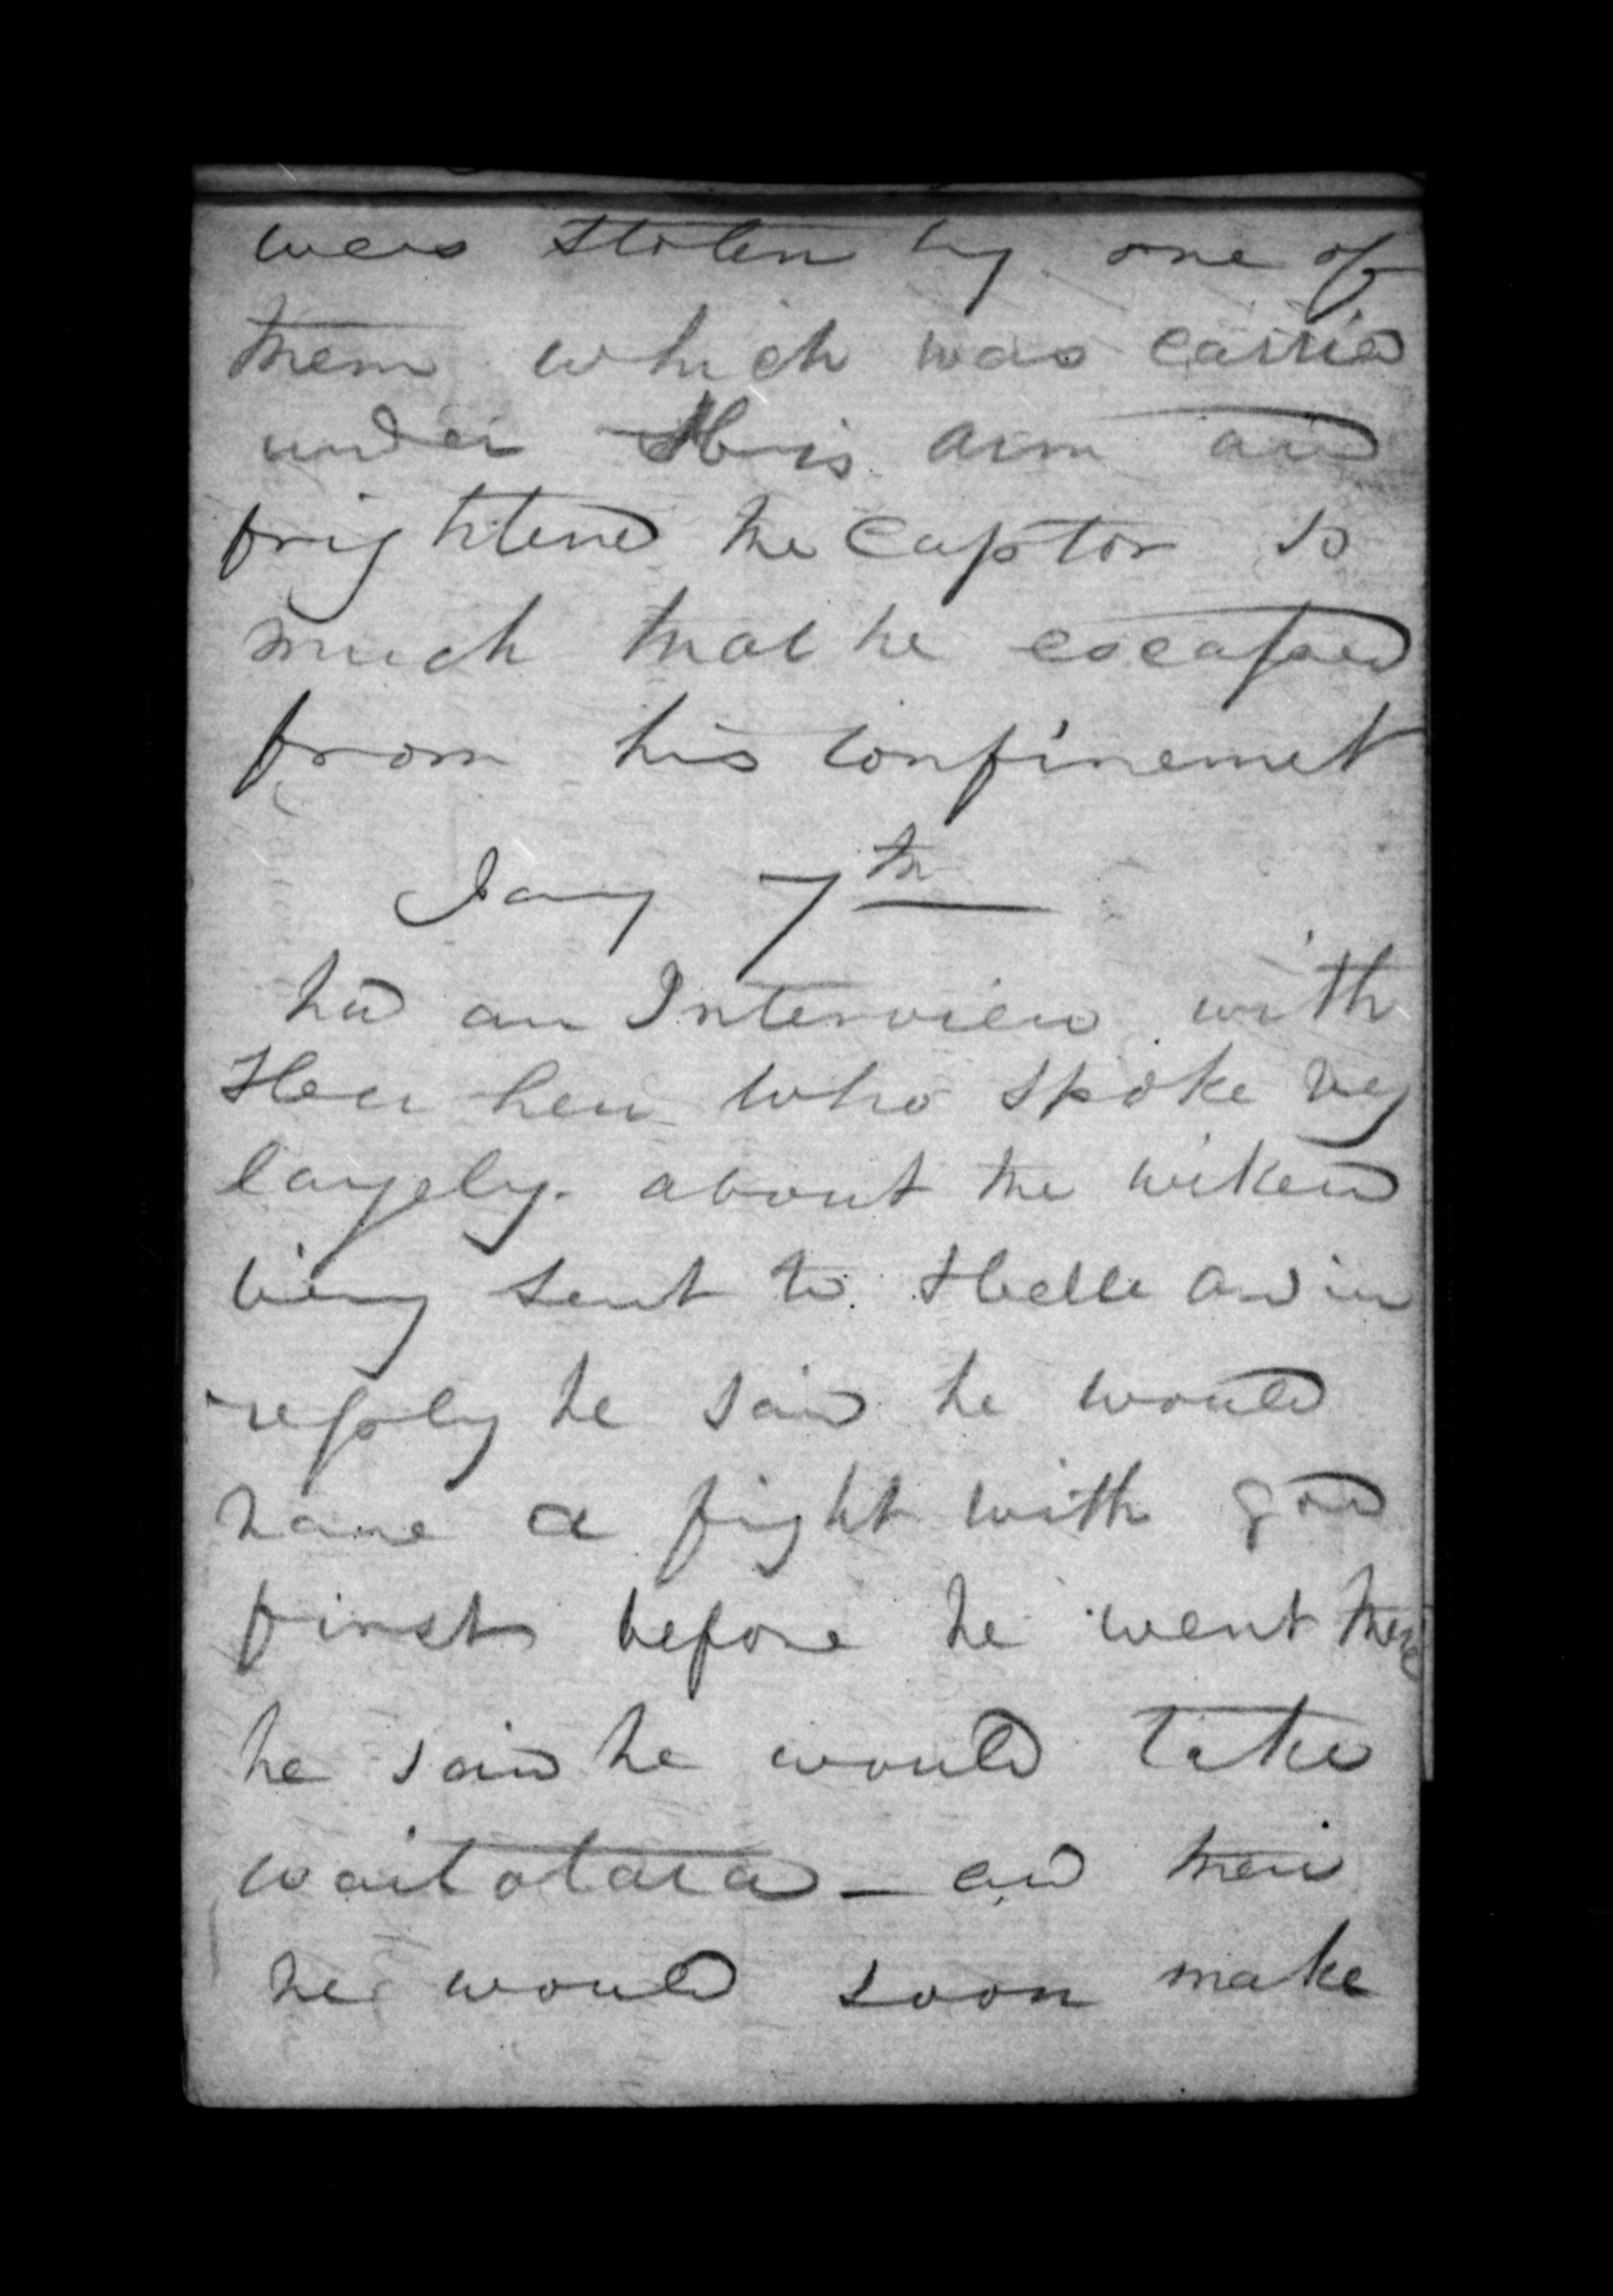 was stolen by one of
them which was carried
under His arm and
frightend the Captor so
much that he escaped
from his confinemet
Jany 7th
had an Interview with
Heu heu who spoke very
largely. about the wiked
being sent to Helle and in
reply he said he would
have a fight with god
first before he went there
he said he would take
waitotara _ and then
he would soon make